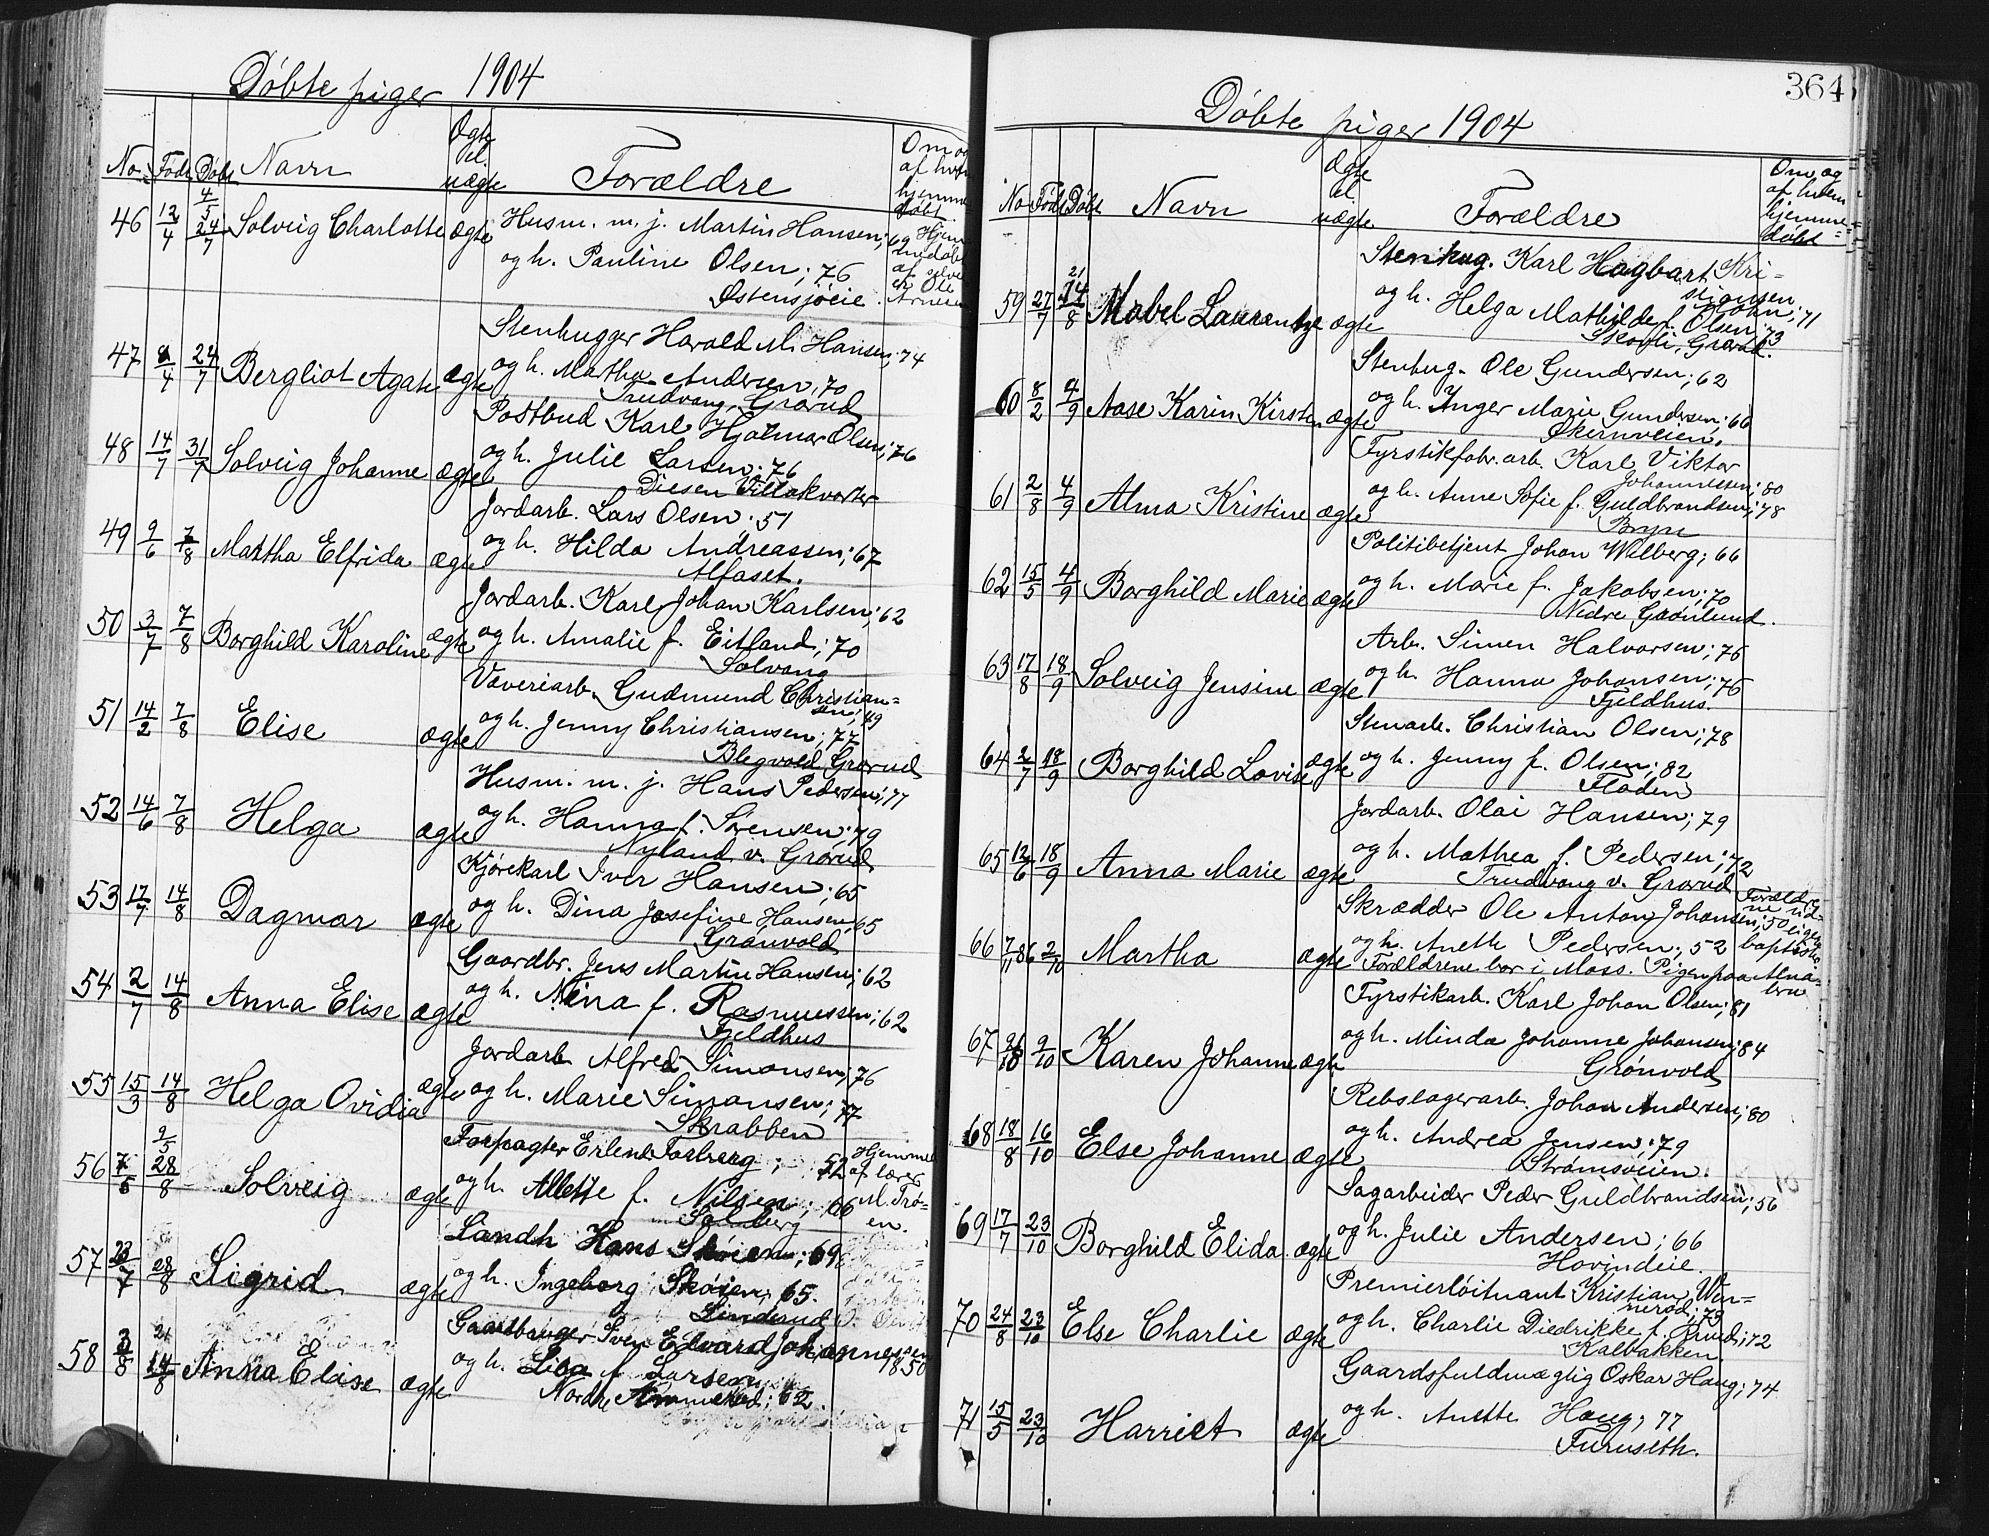 Døbte piger 1904
No. Født Døbt Navn Ægte el. uægte Forældre Om og af hvem hjemme døbt.
46 12/4 4/5 24/7 Solveig Charlotte ægte Husm. m. j. Martin Hansen; 69
og h. Pauline Olsen; 76
Østensjøeie
Hjemmedøbt af
47 8/4 24/7 Bergliot Agate ægte Stenhugger Harald M. Hansen; 74
og h. Martha Andersen; 70
Trudvang, Grorud
48 14/7 31/7 Solveig Johanne ægte Postbud Karl Hjalmar Olsen; 76
og h. Julie Larsen; 76
Diesen Villakvarter
49 9/6 7/8 Martha Elfrida ægte Jordarb. Lars Olsen; 51
og h. Hilda Andreassen; 67
Alfaset.
50 3/7 7/8 Borghild Karoline ægte Jordarb. Karl Johan Karlsen; 62
og h. Amalie f. Eitland; 70
Solvang
51 14/2 7/8 Elise ægte Væveriarb. Gudmund Christian=
sen; 49
og h. Jenny Christiansen; 77
Blegvold Grorud
52 14/6 7/8 Helga ægte Husm. m. j. Hans Pedersen; 77
og h. Hanna f. Sørensen; 79
Nyland v. Grorud
53 17/7 14/8 Dagmar ægte Kjørekarl Iver Hansen; 65
og h. Dina Josefine Hansen; 65
Grønvold
54 2/7 14/8 Anna Elise ægte Gaardbr. Jens Martin Hansen; 62
og h. Nina f. Rasmussen; 62
Fjeldhus
55 15/3 14/8 Helga Ovidia ægte Jordarb. Alfred Simonsen; 76
og h. Marie Simonsen; 77
Skrabben
56 7/5 9/5 28/8 Solveig ægte Forpagter Erlend Forberg; 52
og h. Allette f. Nilsen; 66
Solberg
Hjemme af lærer M. Trø=
en.
57 23/7 28/8 Sigrid ægte Landh. Hans Skøien; 69
og h. Ingeborg Skøien; 65.
Linderud
58 3/8 21 14/8 Anna Elise ægte Gaardbruger Sven Edvard Johannessen
1850
og h. Lica f. Larsen
Nordre Ammerud; 62.
364
Døbte piger 1904
No Født Døbt Navn Ægte el. uægte Forældre Om og af hvem hjemme= døbt
59 27/7 21 14/8 Mabel Laurentze ægte Stenhug. Karl Hagbart Kri=
stiansen
Holm; 71
og h. Helga Mathilde f. Olsen; 73
Skovli, Grorud.
60 8/2 4/9 Aase Karin Kirsten ægte Stenhug. Ole Gundersen; 62
og h. Inger Marie Gundersen; 66
Økernveien.
61 2/8 4/9 Alma Kristine ægte Fyrstikfabr. arb. Karl Viktor
Johannessen; 80
og h. Anne Sofie f. Guldbrandsen; 78
Bryn
62 15/5 4/9 Borghild Marie ægte Politibetjent Johan Wilberg; 66
og h. Marie f. Jakobsen; 70
Nedre Grønlund.
63 17/8 18/9 Solveig Jensine ægte Arb. Simen Halvorsen; 75
og h. Hanna Johansen; 76
Fjeldhus.
64 2/7 18/9 Borghild Lovise ægte Stenarb. Christian Olsen; 78
og h. Jenny f. Olsen; 82
Fladen
65 12/6 18/9 Anna Marie ægte Jordarb. Olai Hansen; 79
og h. Mathea f. Pedersen; 72
Trudvang v. Grorud
66 7/11 86 2/10 Martha ægte Skrædder Ole Anton Johansen; 50
og h. Anette Pedersen; 52
Forældrene bor i Moss. Pigen paa Alna=
bru
Forældre
ne
baptister
67 9/10 Karen Johanne ægte Fyrstikarb. Karl Johan Olsen; 81
og h. Minda Johanne Johansen; 84
Grønvold
68 18/8 16/10 Else Johanne ægte Rebslagerarb. Johan Andersen; 80
og h. Andrea Jensen; 79
Strømsveien
69 17/7 23/10 Borghild Elida ægte Sagarbeider Peder Guldbrandsen; 56
og h. Julie Andersen; 66
Hovindeie.
70 24/8 23/10 Else Charlie ægte Premierløitnant Kristian Win=
nerød; 73
og h. Charlie Diedrikke f. Rund; 72
Kalbakken
71 15/5 23/10 Harriet ægte Gaardsfuldmægtig Oskar Haug; 74
og h. Anette Haug; 77
Furuseth.